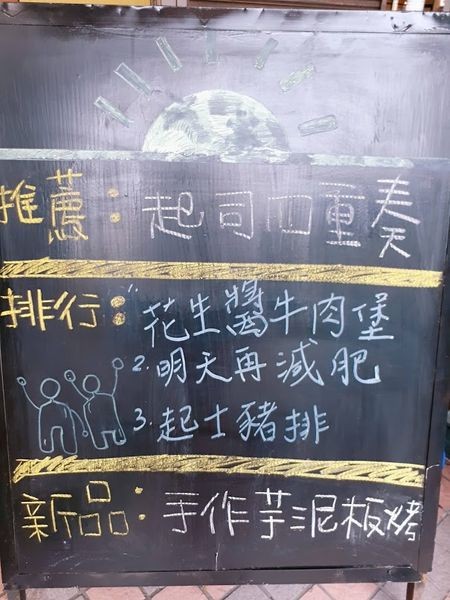 推薦：起司四重奏
排行：1.花生醬牛肉堡
2.明天再減肥
3.起士豬排
新品：手作芋泥板烤